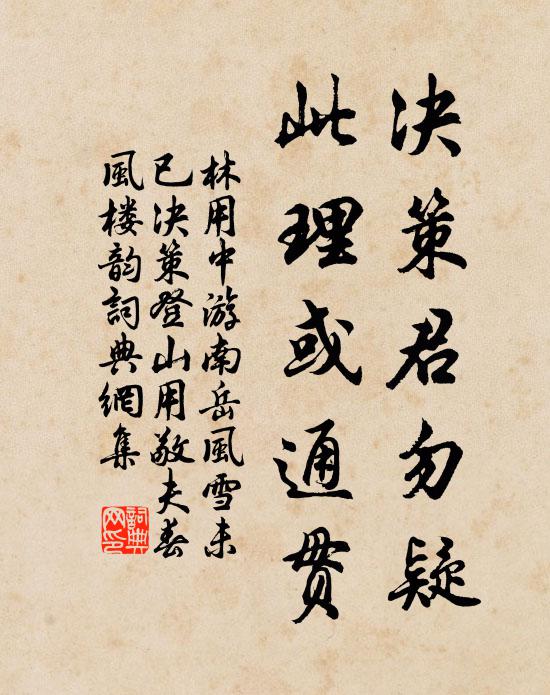 决策君勿疑
此理或通贯
林用中游南岳风雪未
已决策登山用敬夫春
風楼韵詞典網集
詞典
网印